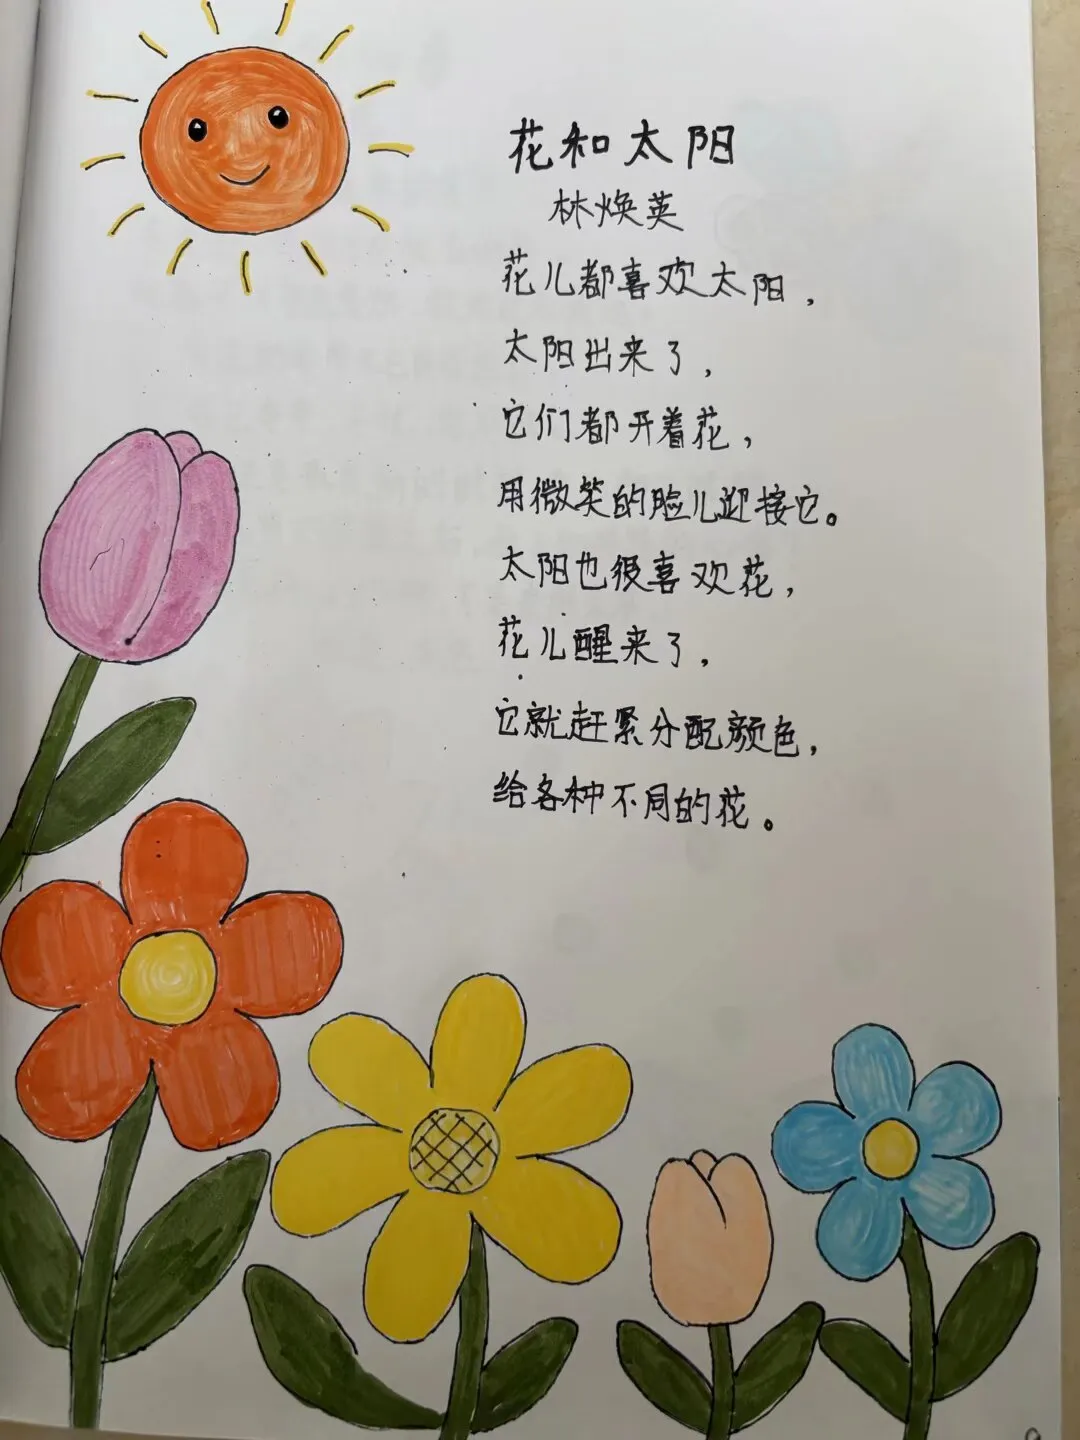 花和太阳
林焕英
花儿都喜欢太阳，
太阳出来了，
它们都开着花，
用微笑的脸儿迎接它。
太阳也很喜欢花，
花儿醒来了，
它就赶紧分配颜色，
给各种不同的花。